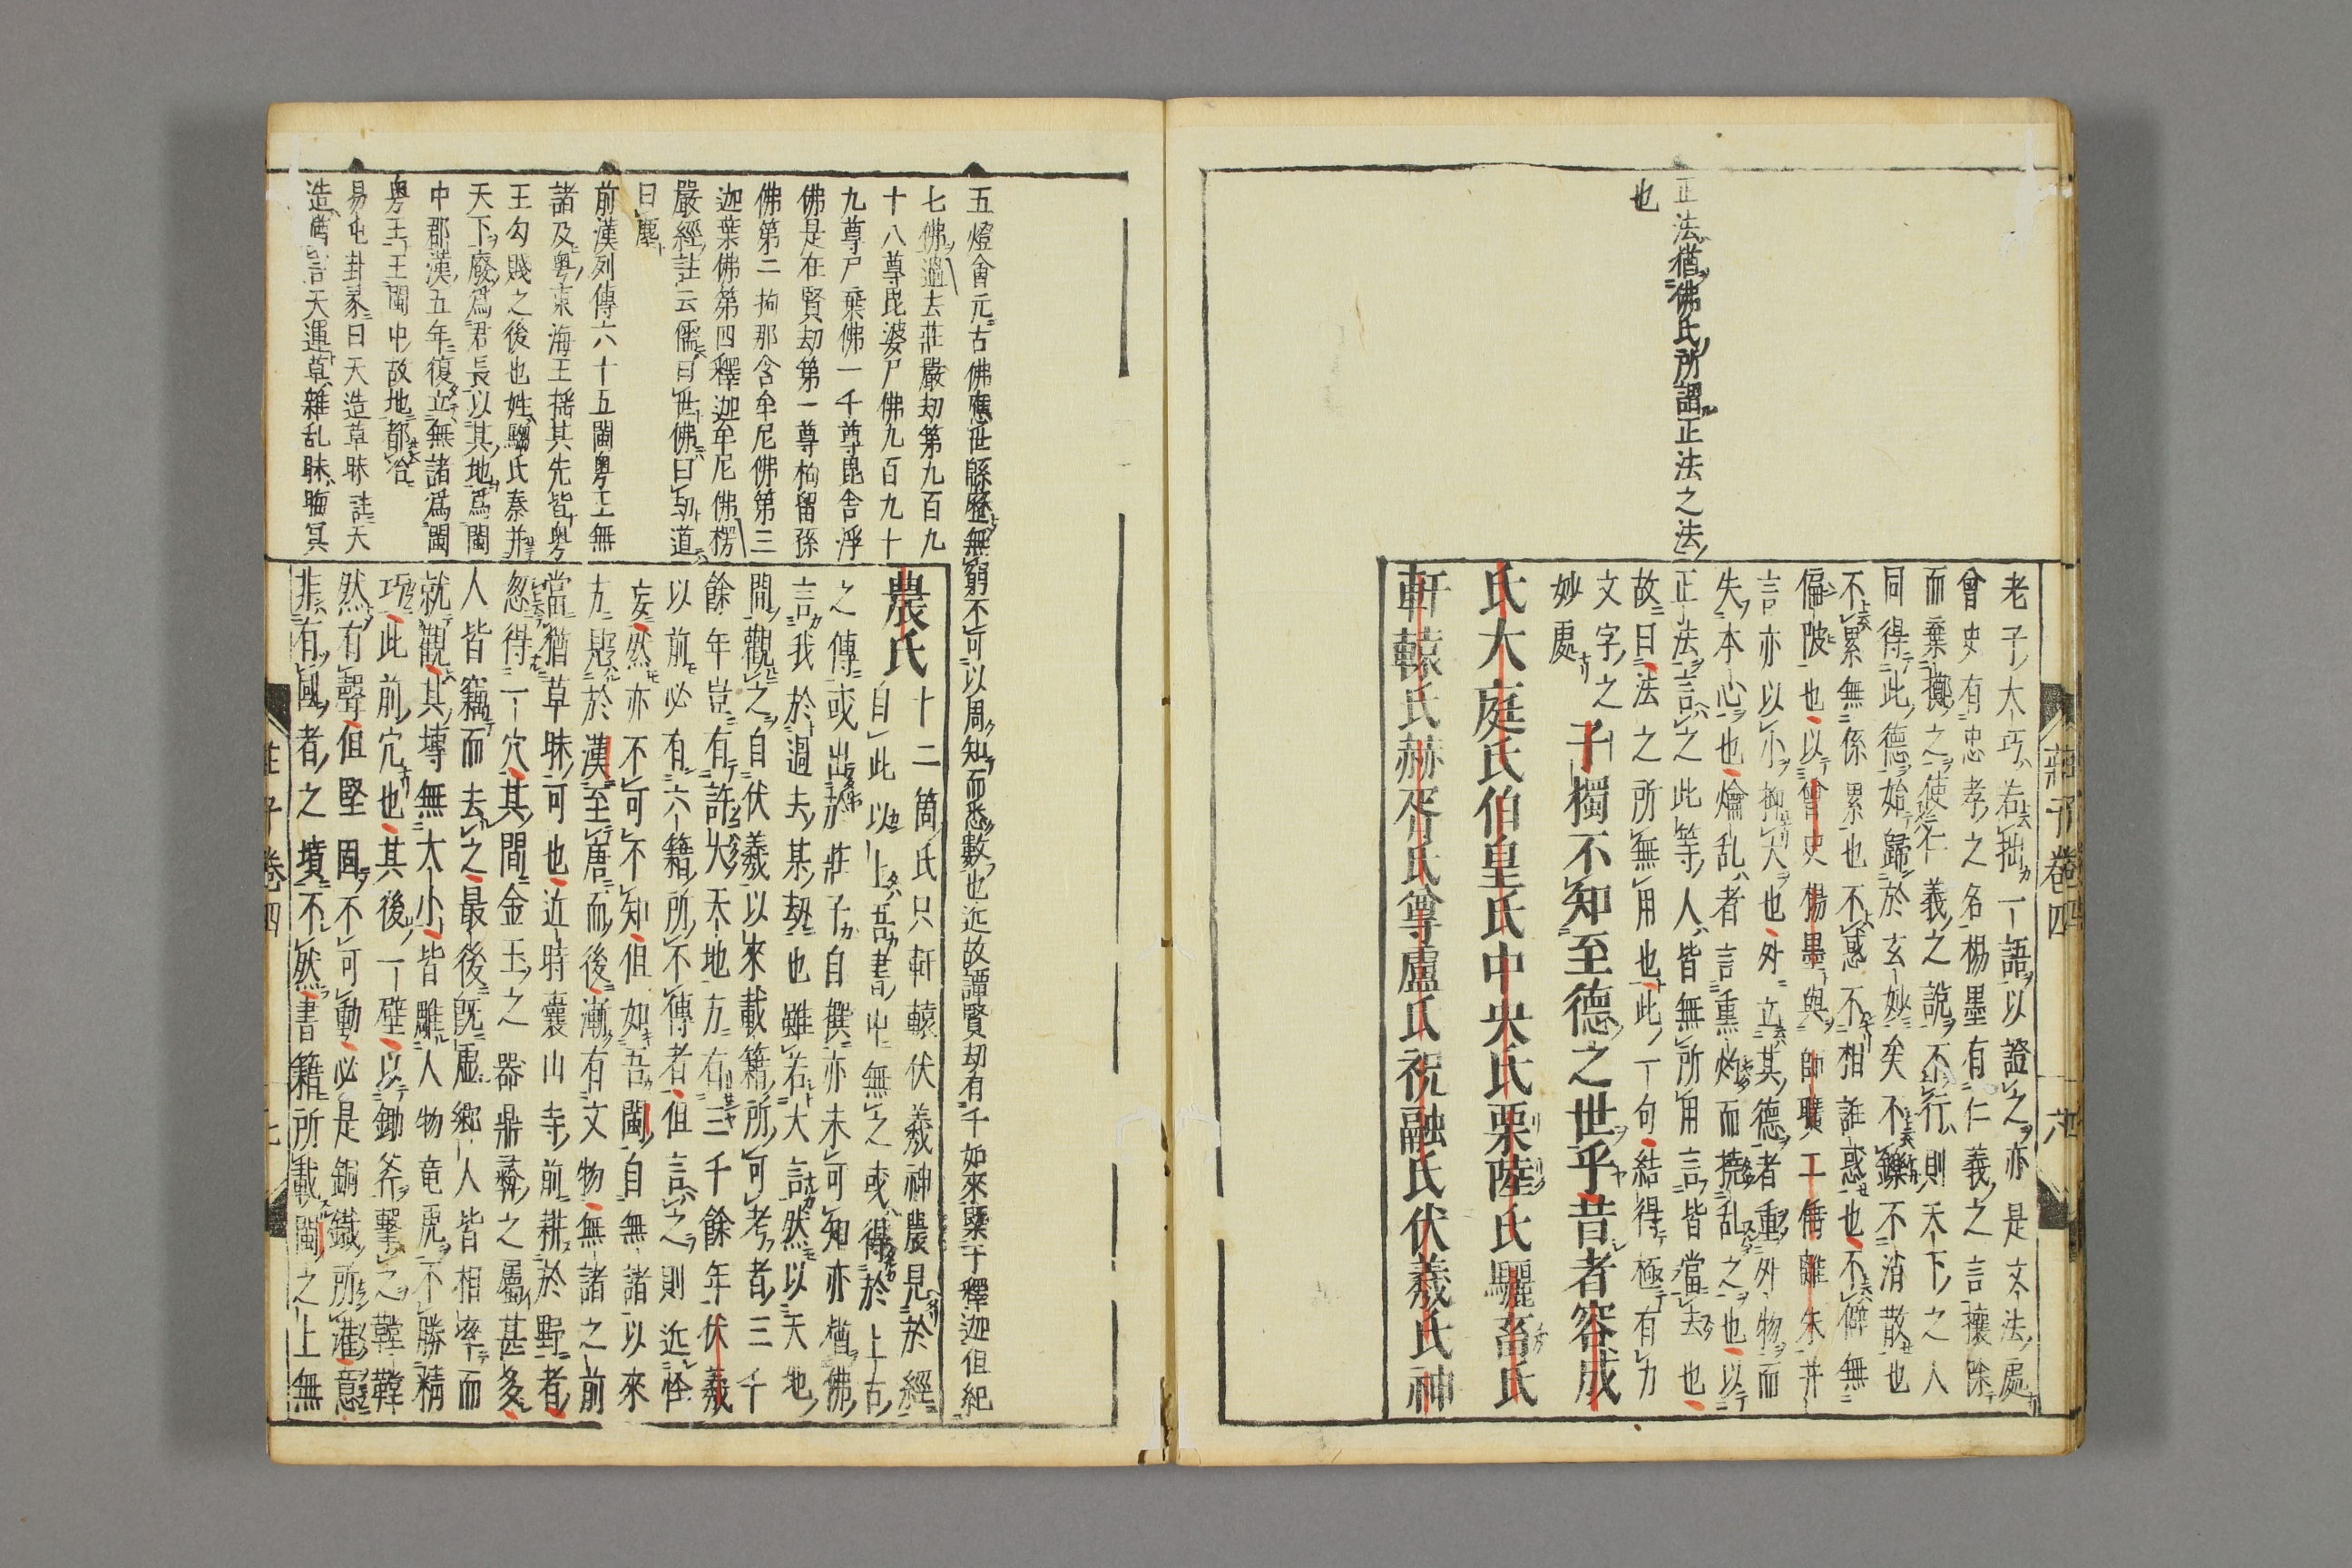 莊子卷四
正法猶佛氏所謂正法之法
也
老子大巧若拙一語以證之亦是文法處
曾史有忠孝之名楊墨有仁義之言攘除
而棄擲之使仁義之說不行則天下之人
同得此德始歸於玄妙矣不鑠不消散也
不累無係累也不惑不相誑惑也不僻無
偏陂也以曾史楊墨與師曠工倕離朱并
言亦以小抑大也外立其德者重外物而
失本心也爚乱者言熏灼而撓乱之也以
正法言之此等人皆無所用言皆當去也
故曰法之所無用也此一句結得極有力
文字之
妙處
子獨不知至德之世乎昔者容成
氏大庭氏伯皇氏中央氏栗陸氏驪畜氏
軒轅氏赫胥氏尊盧氏祝融氏伏羲氏神
五燈會元古佛應世緜歷無窮不可以周知而悉數也近故譚賢劫有千如來曁于釋迦但紀
七佛過去莊嚴劫第九百九
十八尊毘婆尸佛九百九十
九尊尸棄佛一千尊毘舍浮
佛是在賢劫第一尊拘留孫
佛第二拘那含牟尼佛第三
迦葉佛第四釋迦牟尼佛楞
嚴經註云儒曰世佛曰劫道
曰塵
前漢列傳六十五閩粵王無
諸及粵東海王揺其先皆粵
王勾賤之後也姓騶氏秦并
天下廢爲君長以其地爲閩
中郡漢五年復立無諸爲閩
粵王王閩中故地都冶
易屯卦彖曰天造草昧註天
造猶言天運草雜乱昧晦冥
農氏
十二箇氏只軒轅伏羲神農見於經
自此以上吾書中無之或得於上古
之傳或出於莊子自撰亦未可知亦猶佛
言我於過去某劫也雖若大言然以天地
間觀之自伏羲以來載籍所可考者三千
餘年豈有許大天地方有三千餘年伏羲
以前必有六籍所不傳者但言之則近怪
妄然亦不可不知但如吾閩自無諸以來
方見於漢至唐而後漸有文物無諸之前
當猶草昧可也近時囊山寺前耕於野者
忽得一穴其間金玉之器鼎彝之屬甚多
人皆竊而去之最後旣虛鄉人皆相率而
就觀其塼無大小皆雕人物竜虎不勝精
巧此前穴也其後一壁以鋤斧擊之鞺鞺
然有聲但堅固不可動必是銅鐵所灌意
非有國者之墳不然書籍所載閩之上無
莊子卷四